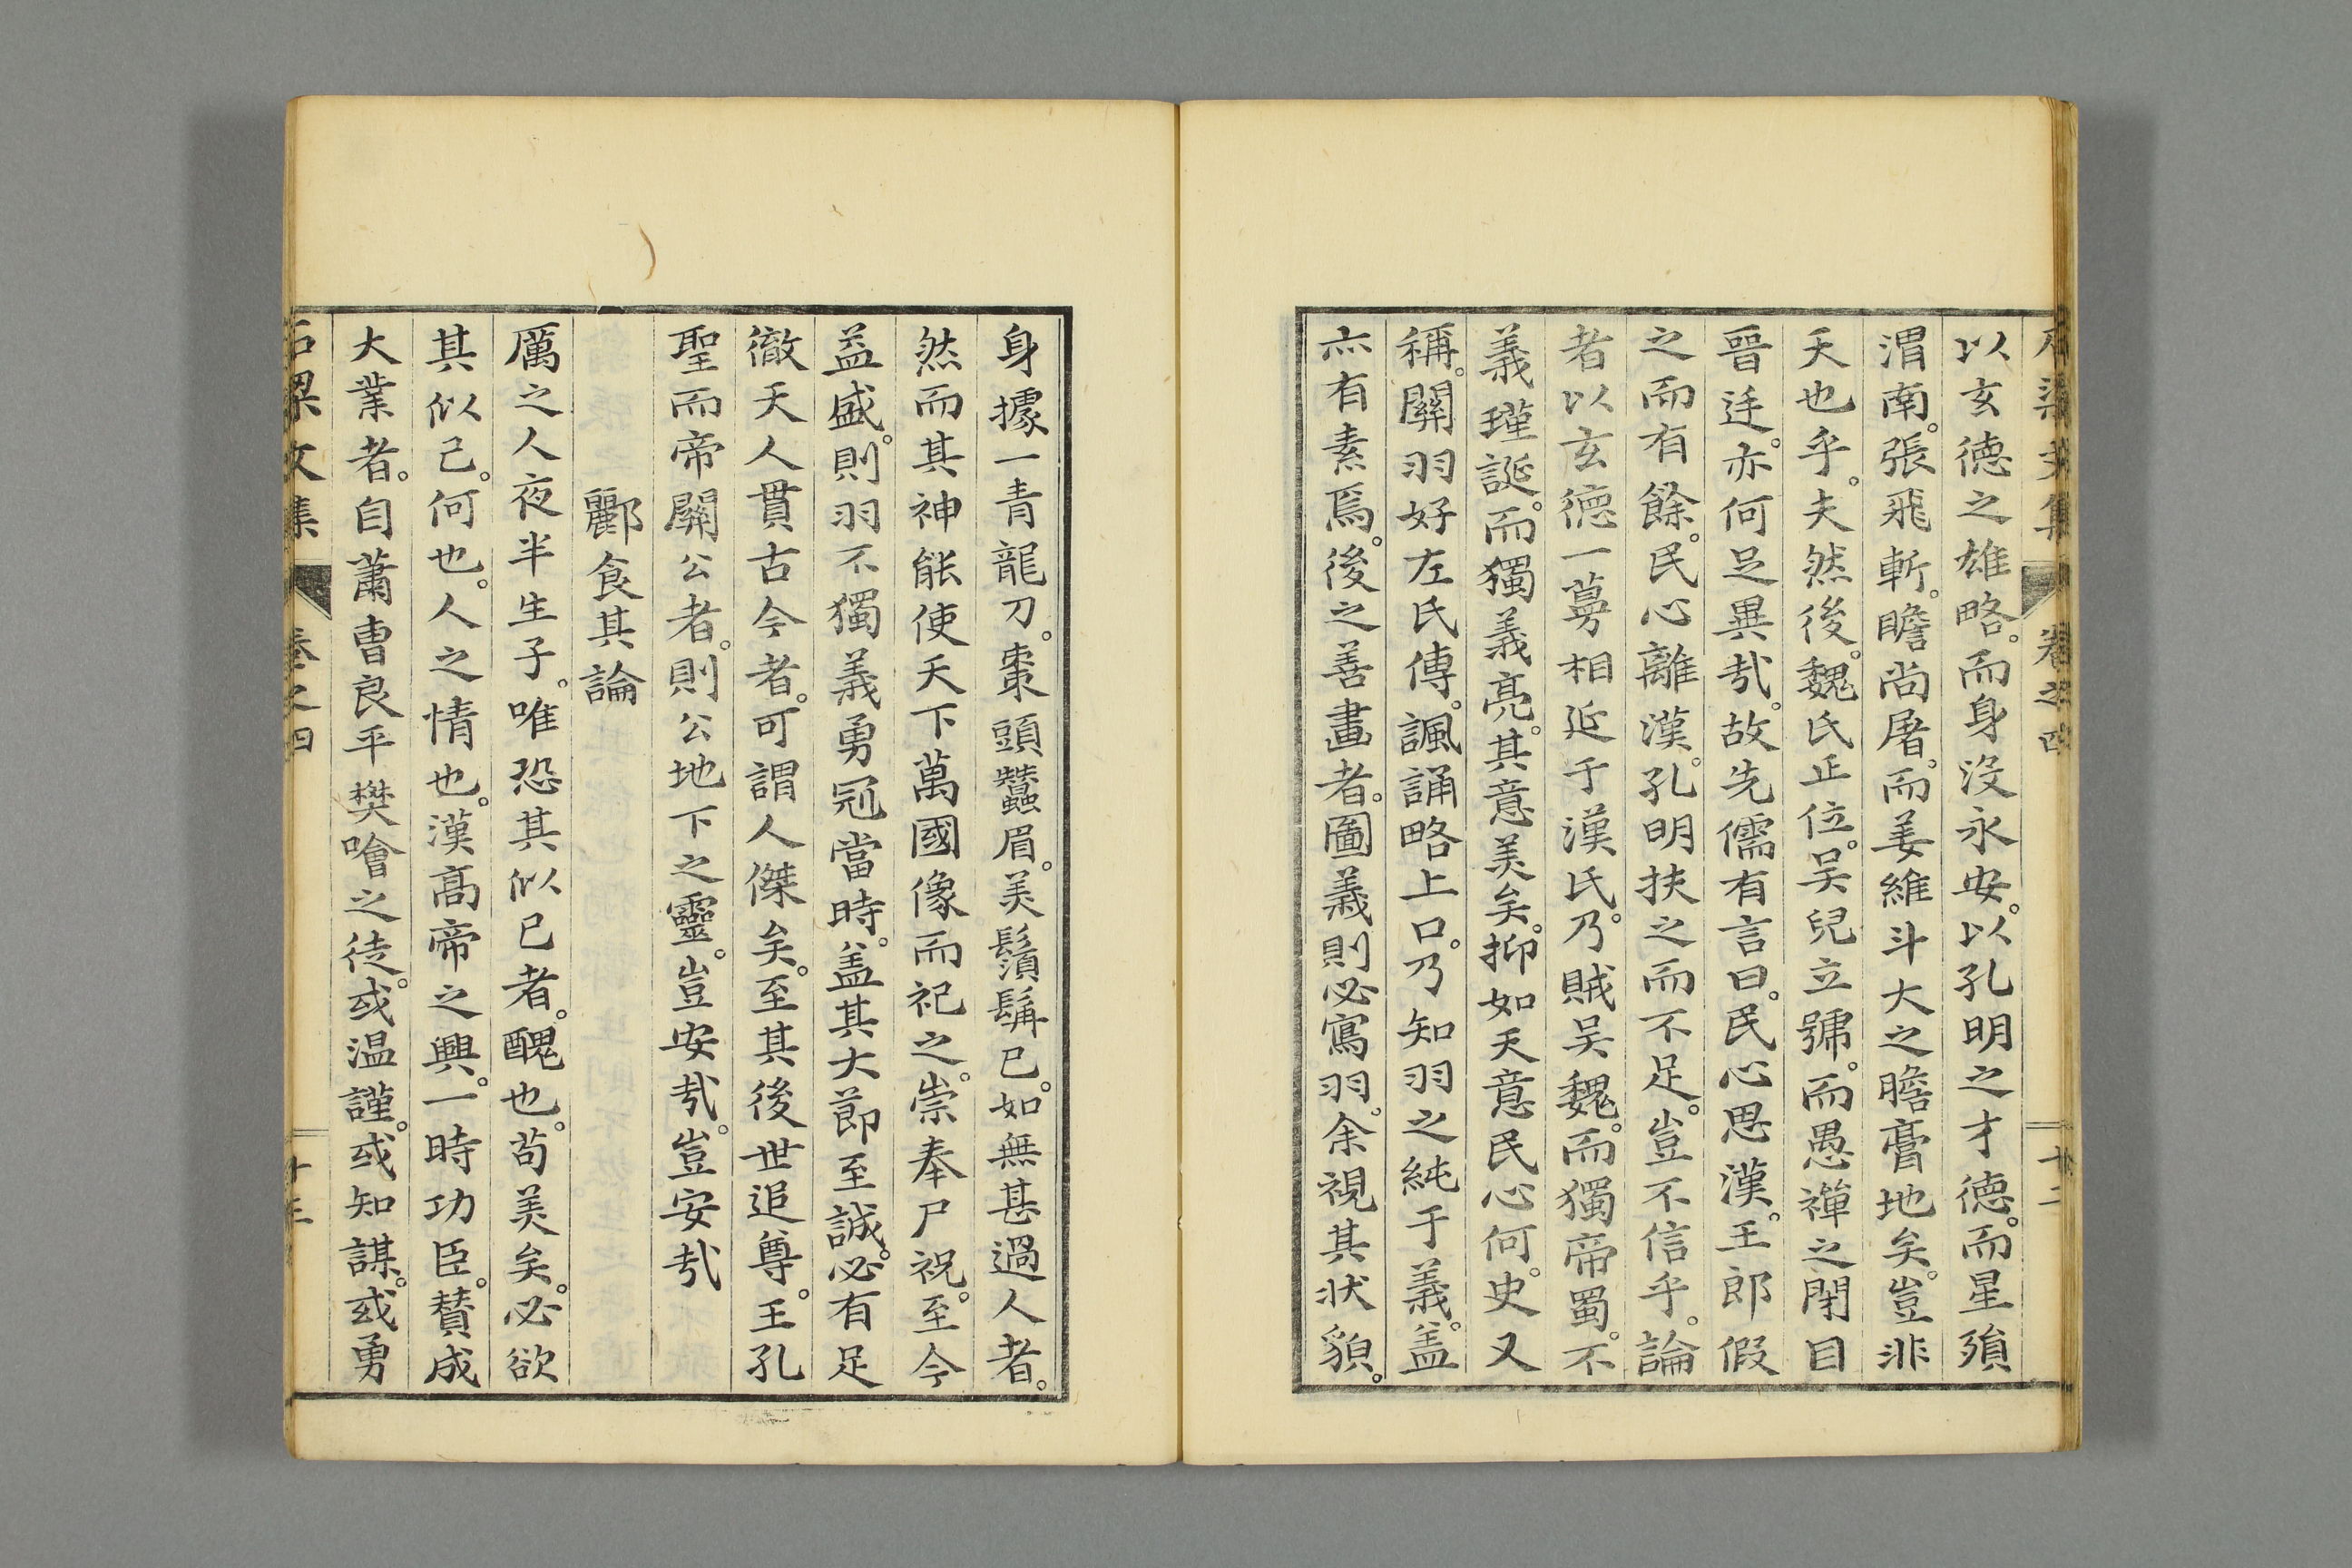 石梁文集 卷之四 十二
以玄德之雄略。而身沒永安。以孔明之才德。而星殞
渭南。張飛斬。瞻尚屠。而姜維斗大之膽膏地矣。豈非
天也乎。夫然後。魏氏正位。吴兒立號。而愚禪之閉目
晉廷。亦何足異哉。故先儒有言曰。民心思漢。王郎假
之而有餘。民心離漢。孔明扶之而不足。豈不信乎。論
者以玄德一蕚相延于漢氏。乃賊吴魏。而獨帝蜀。不
義瑾誕。而獨義亮。其意美矣。抑如天意民心何。史又
稱。關羽好左氏傳。諷誦略上口。乃知羽之純于義。盖
亦有素焉。後之善畫者。圖義則必寫羽。余視其狀貌。
身據一青龍刀。棗頭蠶眉。美鬚髯已。如無甚過人者。
然而其神能使天下萬國像而祀之。崇奉尸祝。至今
益盛。則羽不獨義勇冠當時。盖其大節至誠。必有足
徹天人貫古今者。可謂人傑矣。至其後世追尊。王孔
聖而帝關公者。則公地下之靈。豈安哉。豈安哉
酈食其論
厲之人夜半生子。唯恐其似已者。醜也。苟美矣。必欲
其似己。何也。人之情也。漢高帝之興。一時功臣。賛成
大業者。自蕭曹良平樊噲之徒。或温謹。或知謀。或勇
石梁文集 卷之四 十三